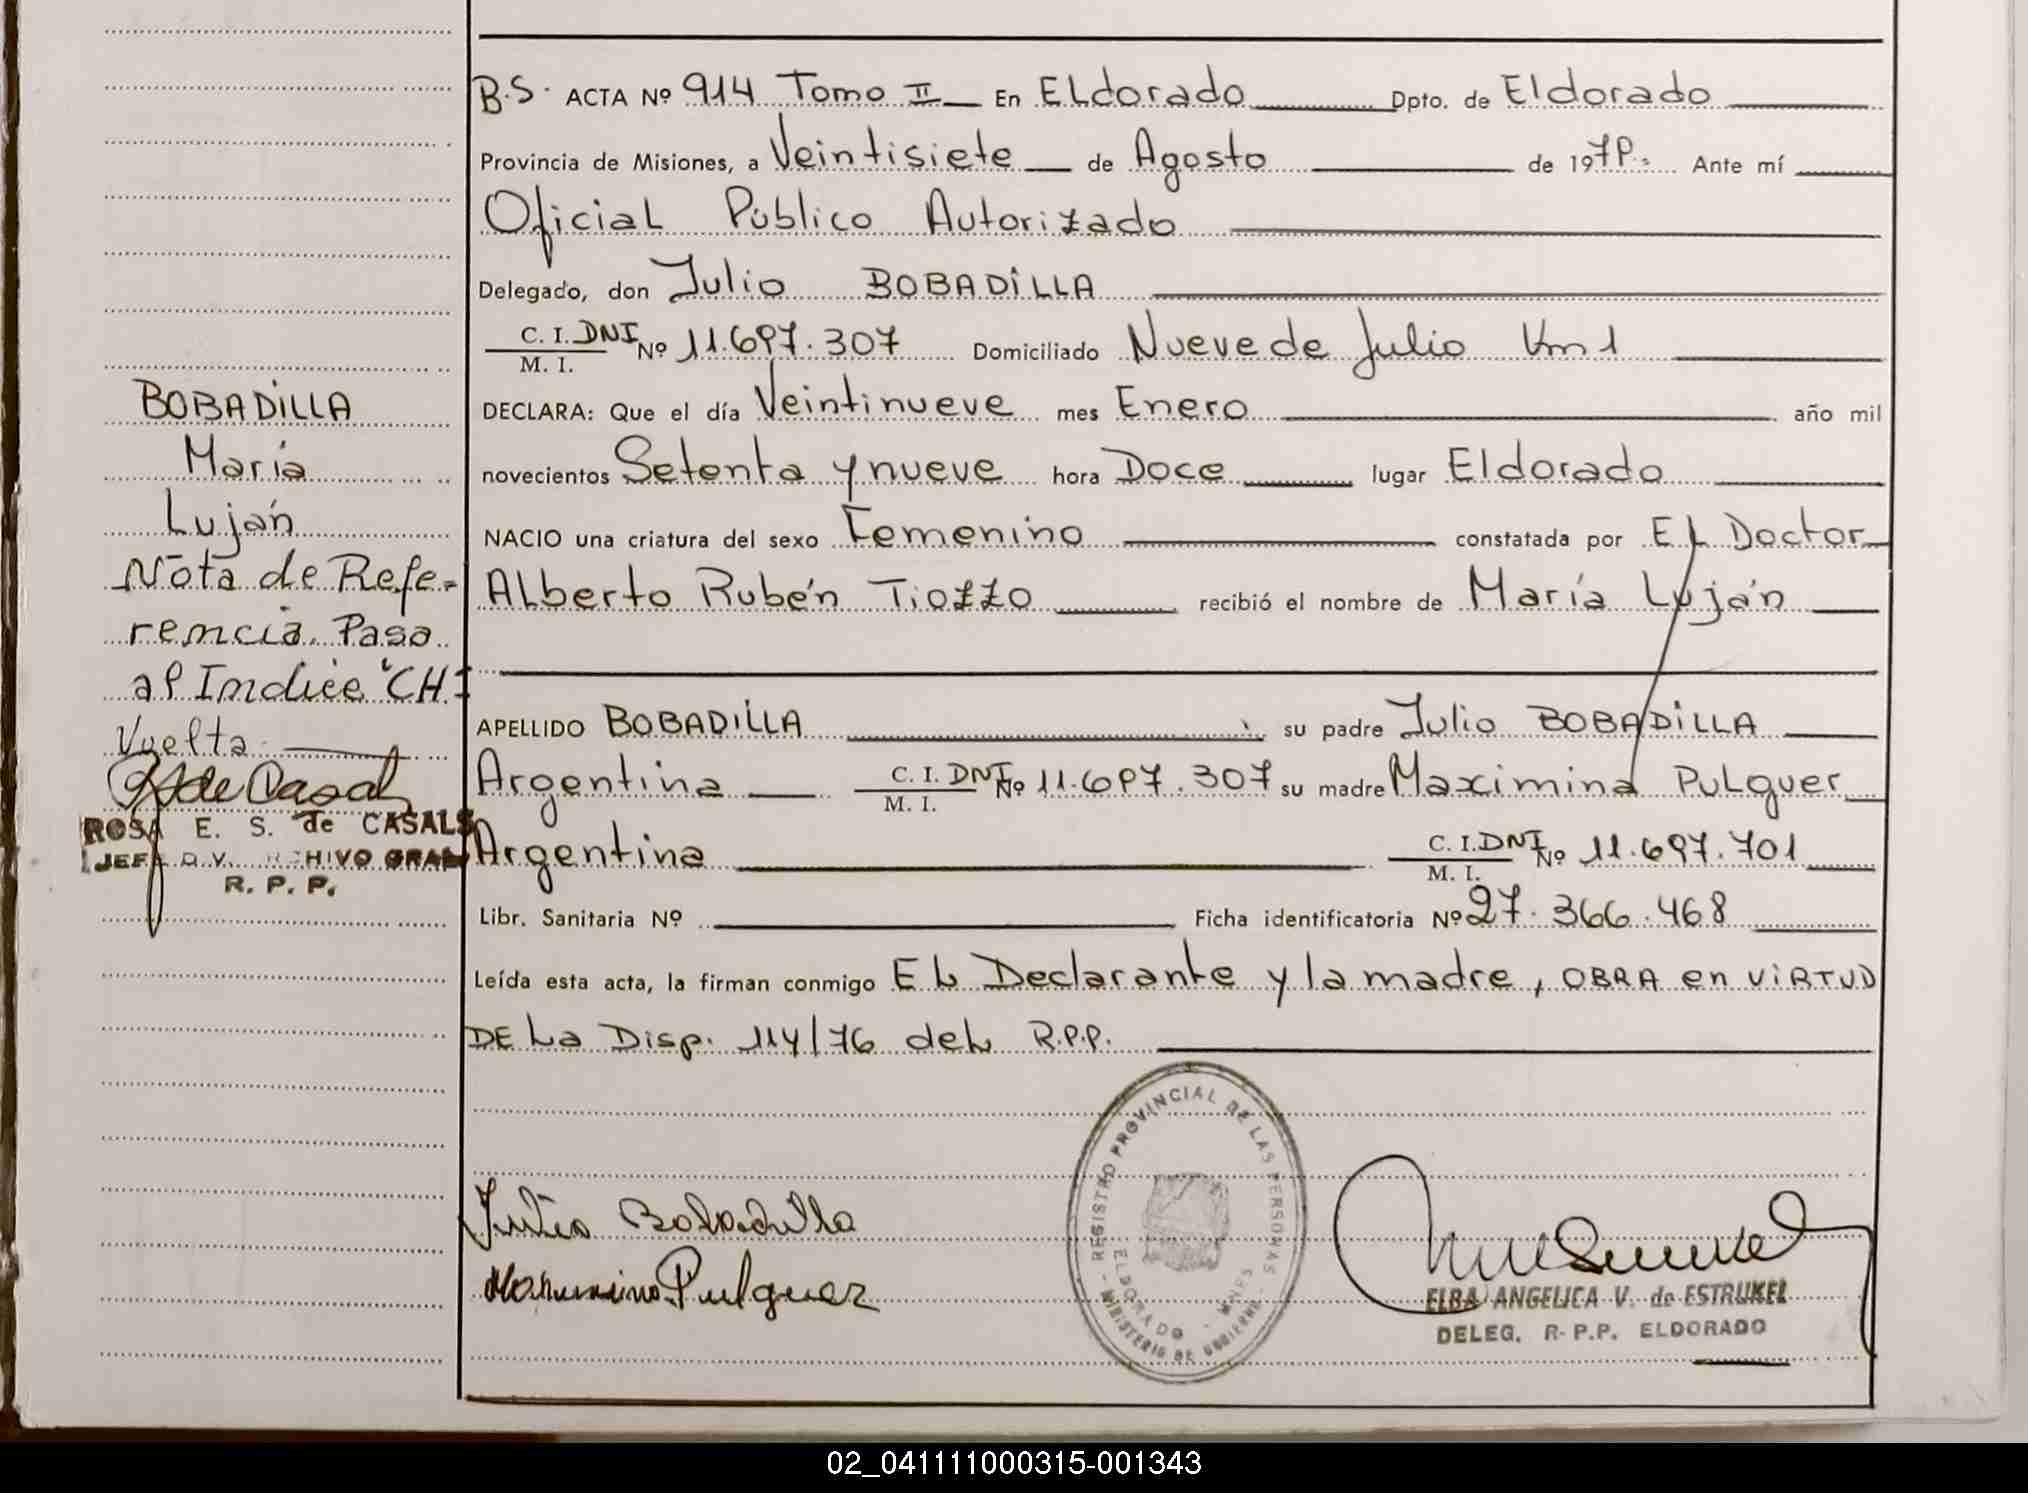 B.S. ACTA Nº 914 Tomo II En ELdorado Dpto. de Eldorado
Provincia de Misiones, a Veintisiete de Agosto de 1979. Ante mí
Oficial Público Autorizado
Delegado, don Julio BOBADILLA
C. I. DNI Nº 11.697.307 Domiciliado Nueve de Julio Km 1
M. I.
DECLARA: Que el día Veintinueve mes Enero año mil
novecientos Setenta y nueve hora Doce lugar Eldorado
NACIO una criatura del sexo Femenino constatada por EL Doctor
Alberto Rubén Tiozzo recibió el nombre de María Luján
APELLIDO BOBADILLA su padre Julio BOBADILLA
Argentina C. I. DNI Nº 11.697.307 su madre Maximina PULguer
M. I.
Argentina C. I. DNI Nº 11.697.701
M. I.
Libr. Sanitaria Nº Ficha identificatoria Nº 27.366.468
Leída esta acta, la firman conmigo EL Declarante y la madre, OBRA en VIRTUD
DE La Disp. 114/76 deL R.P.P.
BOBADILLA
María
Luján
Nota de Refe-
rencia Pasa
al Indice "CH"
Vuelta
ROSA E. S. de CASALS
JEFA DIV. ARCHIVO GRAL
R. P. P.
Julio Bobadilla
Maximina Pulguer
REGISTRO PROVINCIAL DE LAS PERSONAS
ELDORADO - MNES
MINISTERIO DE GOBIERNO
ELBA ANGELICA V. de ESTRUKEL
DELEG. R.P.P. ELDORADO
02_041111000315-001343